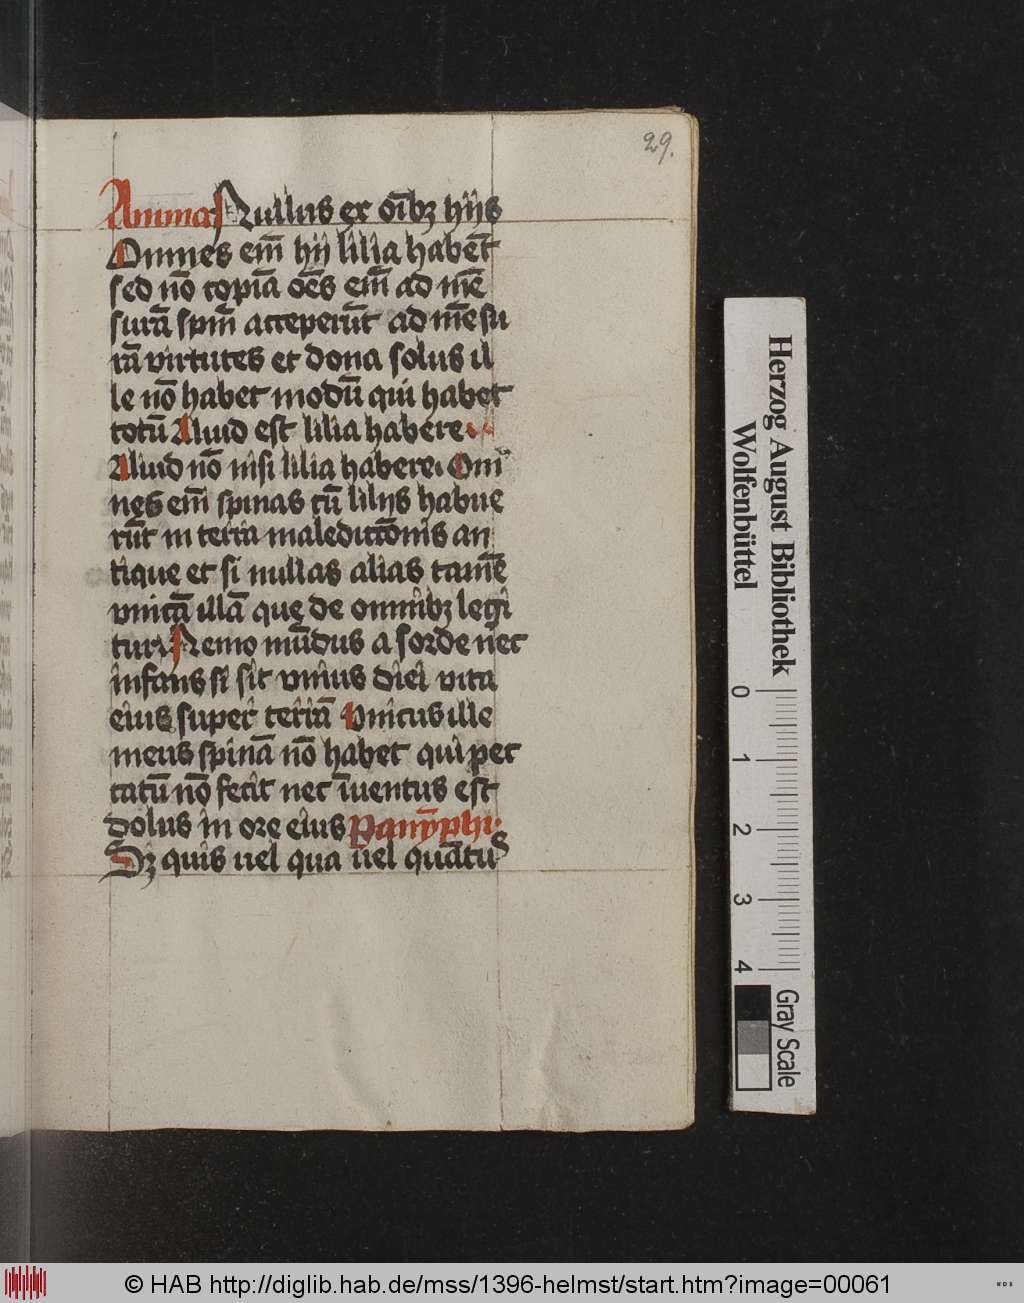 29.
Anima Nullus ex oı̅bꝫ hijs
Omnes em̅ hij lilia habe̅t
sed no̅ copia̅ o̅es em̅ ad me̅
sura̅ spm̅ acceperu̅t ad mensu
ra̅ virtutes et dona solus il
le no̅ habet modu̅ qui habet
totu̅ Aliud est lilia habere
Aliud no̅ nisi lilia habere. Om
nes em̅ spinas cu̅ lilijs habue
ru̅t in terra maledicto̅nis an
tique et si nullas alias tame̅
vnica̅ illa̅ que de omnibꝫ legi
tur Nemo mu̅dus a sorde nec
infans si sit vnius diei vita
eius super terra̅ Vnicus ille
meus spina̅ no̅ habet qui pec
catu̅ no̅ fecit nec i̅uentus est
dolus in ore eius Pany̅phi.
Sꝫ quis uel qua uel qua̅tus
Herzog August Bibliothek
Wolfenbüttel
0 1 2 3 4
Gray Scale
© HAB http://diglib.hab.de/mss/1396-helmst/start.htm?image=00061